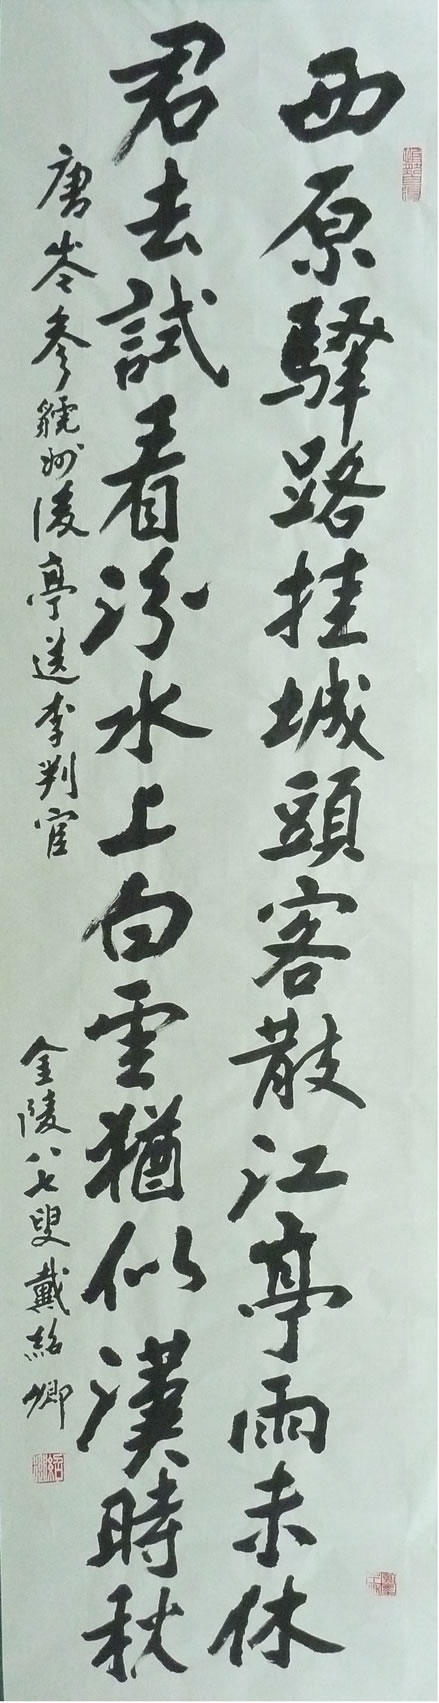 西原驛路挂城頭客散江亭雨未休
君去試看汾水上白雲猶似漢時秋
唐岑參虢州後亭送李判官
金陵八七叟戴紹卿